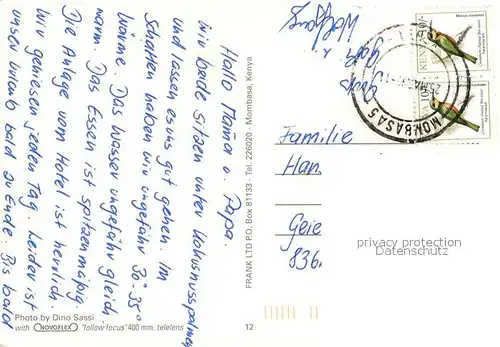 Hallo Mama u. Papa.
Wir beide sitzen unter Kokusnusspalmen
und lassen es uns gut gehen. Im
Schatten haben wir ungefähr 30-35°
Wärme. Das Wasser ungefähr gleich
warm. Das Essen ist spitzenmäßig.
Die Anlage vom Hotel ist herrlich.
Wir genissen jeden Tag. Leider ist
unser Urlaub bald zu Ende. Bis bald
Wolfgang
Photo by Dino Sassi
with NOVOFLEX "follow focus" 400 mm. telelens
FRANK LTD P.O. Box 81133 - Tel. 226020 - Mombasa, Kenya
12
KENYA
KENYA
MOMBASA 5
Familie
Han
Geie
836
privacy protection
Datenschutz